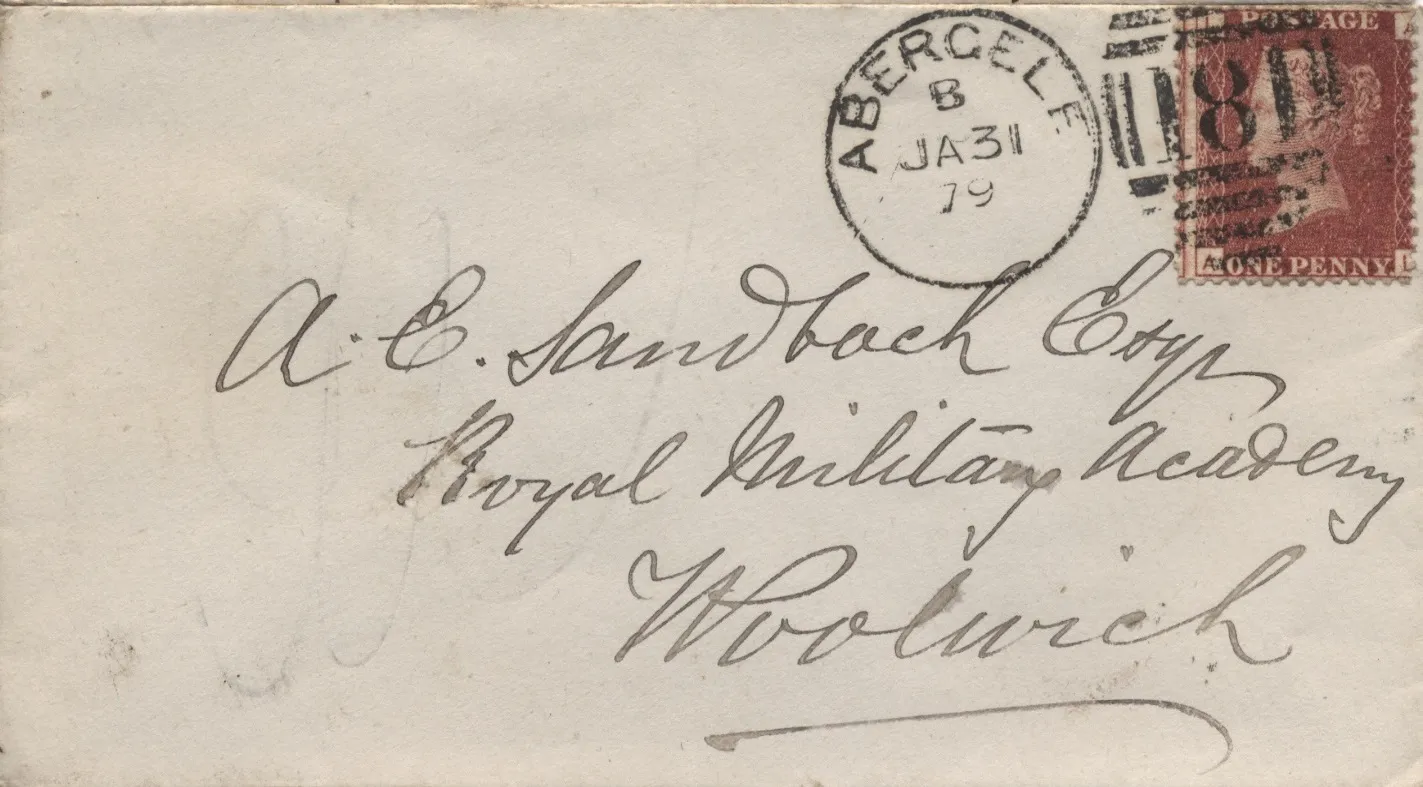 ABERGELE
B
JA 31
79
181
POSTAGE
A
ONE PENNY
L
A. E. Sandbach Esqr
Royal Military Academy
Woolwich